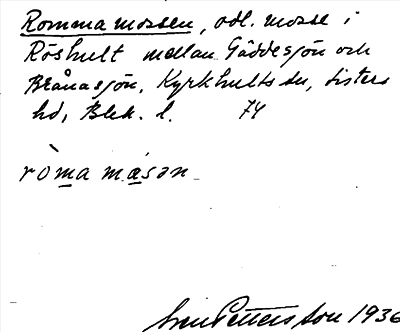 Romma mossen, odl. mosse i
Röshult mellan Gäddesjön och
Brånasjön, Kyrkhults sn, Listers
hd, Blek. l. 74
ròma màsan
Sven Pettersson 1936